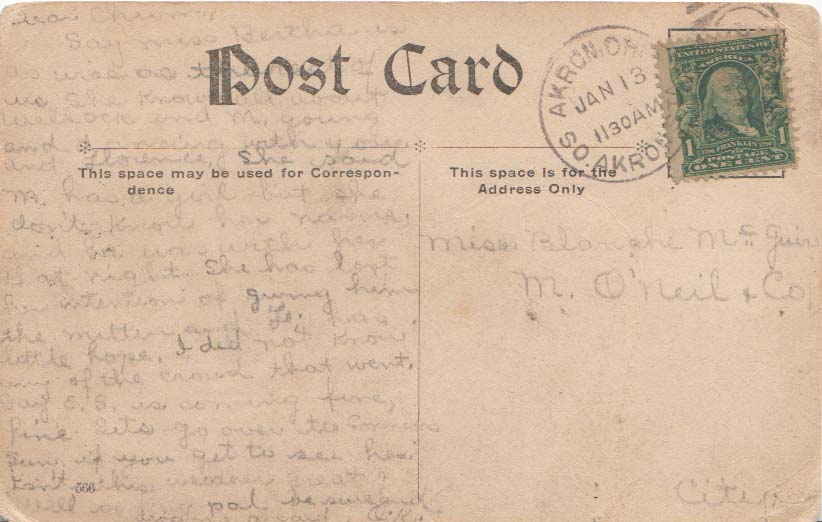 Dear Chum,
Say miss Bertha is
as wise as the rest of
us. She knows all about
and M. young
and I going with you
and Florence, She said
M. has a girl but she
don't know her name,
said he was with her
at night. She has lost
her intention of giving him
the mitten and has
little hope. I did not know
any of the crowd that went.
Say E. S. is coming fine,
fine. Lets go over to
Sun, if you get to see her
Isn't this weather great?
Well so my pal be sweet
Post Card
AKRON, OH
JAN 13
1130AM
SO. AKRON
UNITED STATES OF
AMERICA
1 FRANKLIN 1
POSTAGE
ONE CENT
This space may be used for Correspon-
dence
This space is for the
Address Only
Miss Blanche Mc Guire
M. O'Neil & Co
City
566